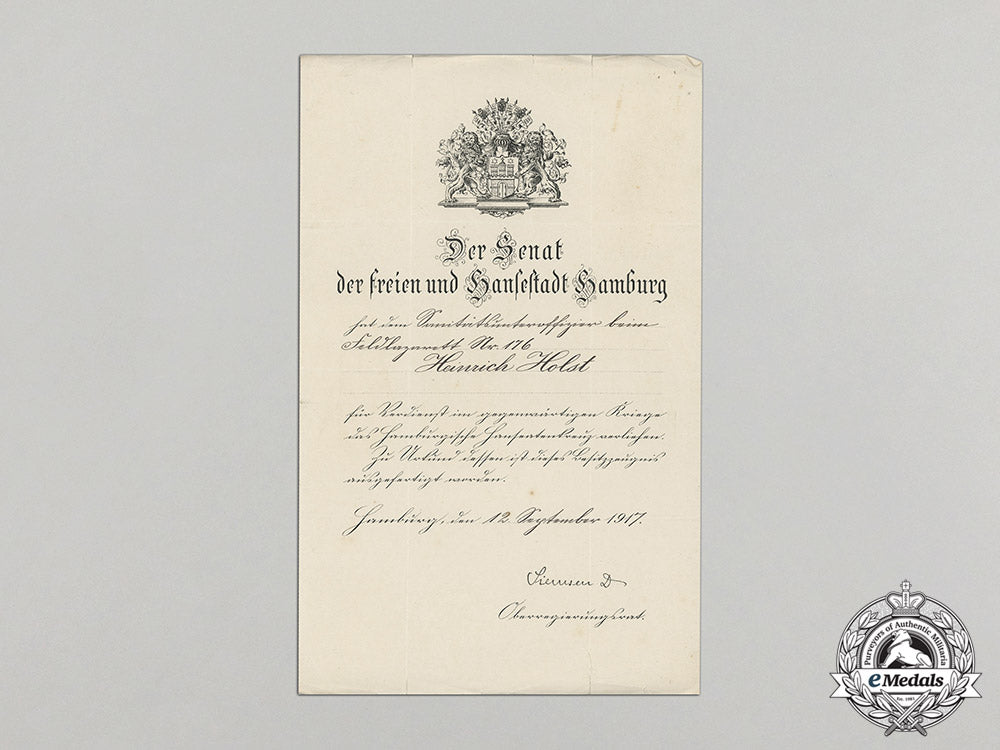 Der Senat
der freien und Hansestadt Hamburg
hat dem Sanitätsunteroffizier beim
Feldlazarett Nr. 176
Heinrich Holst
für Verdienst im gegenwärtigen Kriege
das Hamburgische Hanseatenkreuz verliehen.
Zu Urkund dessen ist dieses Besitzzeugnis
ausgefertigt worden.
Hamburg, den 12. September 1917.
Siemsen D
Oberregierungsrat.
Purveyors of Authentic Militaria
eMedals
Est. 1985